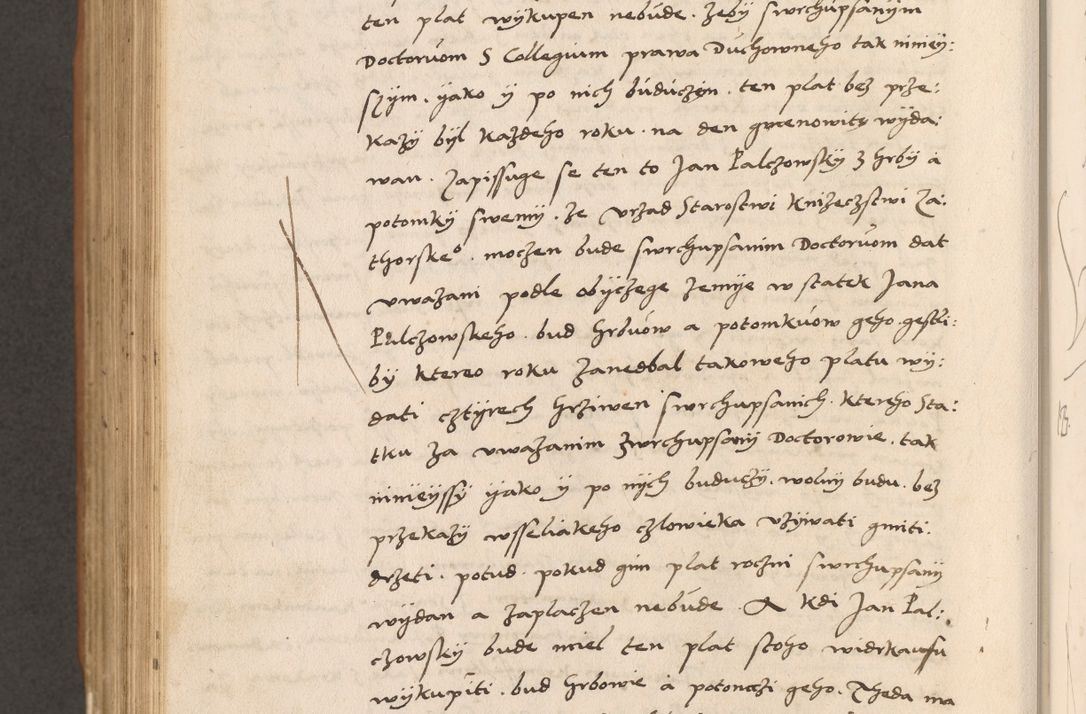 ten plat wykupen nebude. żeby swrchupsanym
Doctoruom S Collegium prawa Duchowneho tak niniey:
szym, yako y po nich buduczym, ten plat bez prze:
kazy byl każdeho roku. na den gmenowity wyda:
wan. Zapissuge se ten to Jan Palczowsky z hrby a
potomky swemy. że vrzad Starostwi Knizeczstwi Za:
thorskeo. moczen bude swrchupsanim Doctoruom dat
vwazani podle obyczege zemye w statek Jana
Palczowskeho. bud hrbuow a potomkuow geho. gestli:
by ktereo roku zanedbal takoweho platu wy:
dati cztyrech hrziwen swrchupsanich. ktereho Sta:
tku za vwazanim zwrchupsany Doctorowie. tak
ninieyssy yako y po nych buduczy. wolny budu. bez
przekazy wsseliakeho czlowieka vżywati gmiti.
drżeti. potud. pokud gim plat roczni swrchupsany
wydan a zaplaczen nebude. A kdi Jan Pal:
czowsky bude miel ten plat stoho widrkaufu
wykupiti. bud hrbowie a potomczi geho. Theda ma